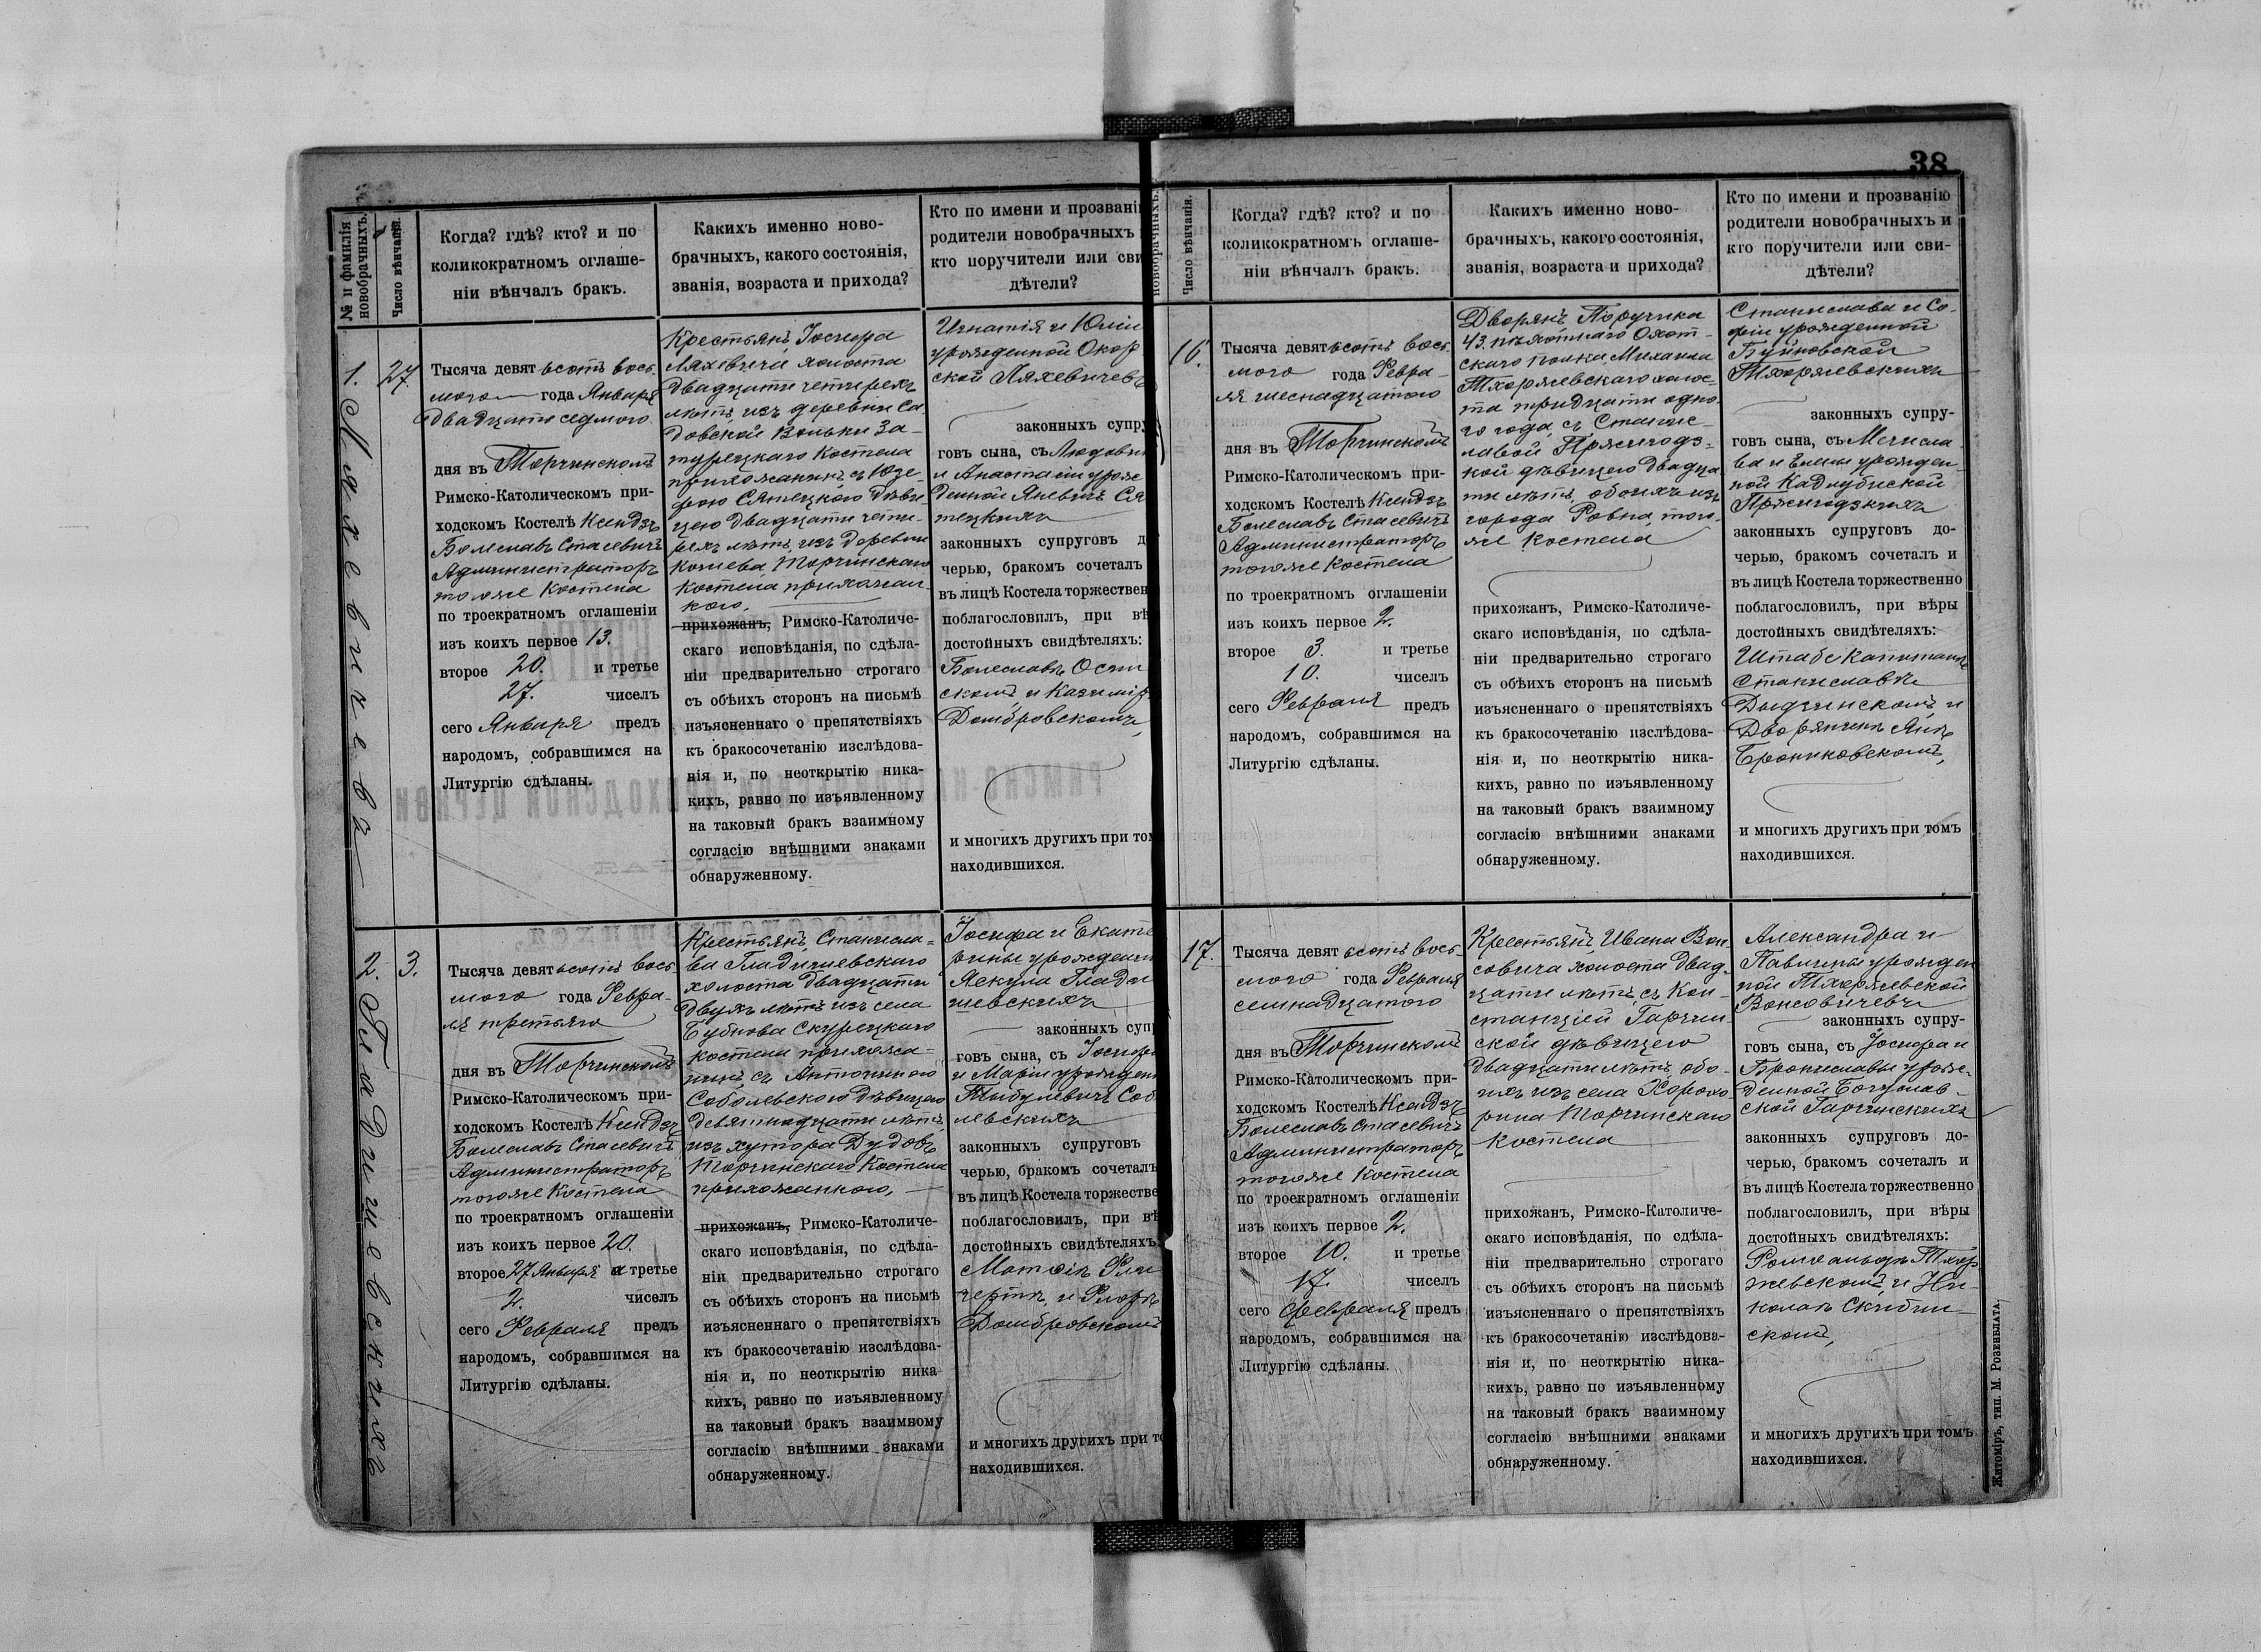 38
№ и фамилія
новобрачныхъ.
Число вѣнчанія.
Когда? гдѣ? кто? и по
коликократномъ оглаше-
ніи вѣнчалъ бракъ.
Какихъ именно ново-
брачныхъ, какого состоянія,
званія, возраста и прихода?
Кто по имени и прозванію
родители новобрачныхъ
кто поручители или сви
дѣтели?
1. Ляхевичева
27.
Тысяча девятьсотъ вось-
мого года Января
двадцать седмого
дня въ Торчинскомъ
Римско-Католическомъ при-
ходскомъ Костелѣ Ксендзъ
Болеславъ Стасевичъ
Администраторъ
тогоже Костела
по троекратномъ оглашеніи
изъ коихъ первое 13.
второе 20. и третье
27. чиселъ
сего Января предъ
народомъ, собравшимся на
Литургію сдѣланы.
Крестьянъ Іосифа
Ляхевича холоста
двадцати четырехъ
лѣтъ, изъ деревни Са
довской Вольки За-
турецкаго Костела
прихожанинъ, съ Юзе-
фою Сятецкою дѣви
цею двадцати четы-
рехъ лѣтъ, изъ деревни
Торчинскаго
Костела прихожан-
кою,
прихожанъ, Римско-Католиче-
скаго исповѣданія, по сдѣла-
ніи предварительно строгаго
съ обѣихъ сторонъ на письмѣ
изъясненнаго о препятствіяхъ
къ бракосочетанію изслѣдова-
нія и, по неоткрытію ника-
кихъ, равно по изъявленному
на таковый бракъ взаимному
согласію внѣшними знаками
обнаруженному.
Игнатія и Юліи
урожденной Окор
ской Ляхевичевъ
законныхъ супру
говъ сына, съ Людови
и Анастасіи урож
денной Яневичъ Ся
тецкихъ
законныхъ супруговъ д
черью, бракомъ сочеталъ
въ лицѣ Костела торжествен
поблагословилъ, при вѣ
достойныхъ свидѣтеляхъ:
Болеславѣ Осин
скомъ и Казимір
Домбровскомъ,
и многихъ другихъ при том
находившихся.
2. Гладишевскихъ
3.
Тысяча девятьсотъ вось-
мого года Февра-
ля третьяго
дня въ Торчинскомъ
Римско-Католическомъ при-
ходскомъ Костелѣ Ксендзъ
Болеславъ Стасевичъ
Администраторъ
тогоже Костела
по троекратномъ оглашеніи
изъ коихъ первое 20.
второе 27 Января и третье
2. чиселъ
сего Февраля предъ
народомъ, собравшимся на
Литургію сдѣланы.
Крестьянъ, Станисла-
ва Гладишевскаго
холоста двадцати
двухъ лѣтъ изъ села
Бубнова Скурецкаго
костела прихожа-
нинъ, съ Антониною
Соболевскою дѣвицею
девятнадцати лѣтъ,
изъ хутора Дудовъ
Торчинскаго Костела
прихожанкою,
прихожанъ, Римско-Католиче-
скаго исповѣданія, по сдѣла-
ніи предварительно строгаго
съ обѣихъ сторонъ на письмѣ
изъясненнаго о препятствіяхъ
къ бракосочетанію изслѣдова-
нія и, по неоткрытію ника
кихъ, равно по изъявленному
на таковый бракъ взаимному
согласію внѣшними знаками
обнаруженному.
Іосифа и Екате
рины урожденн
Яскула Глади
шевскихъ
законныхъ суп
говъ сына, съ Іосифа
и Маріи урожден
Тыбулевичъ Соб
левскихъ
законныхъ супруговъ
черью, бракомъ сочеталъ
въ лицѣ Костела торжестве
поблагословилъ, при вѣ
достойныхъ свидѣтеляхъ
и Флорѣ
Домбровскомъ
и многихъ другихъ при то
находившихся.
новобрачныхъ.
Число вѣнчанія.
Когда? гдѣ? кто? и по
коликократномъ оглаше-
ніи вѣнчалъ бракъ.
Какихъ именно ново-
брачныхъ, какого состоянія,
званія, возраста и прихода?
Кто по имени и прозванію
родители новобрачныхъ и
кто поручители или сви-
дѣтели?
16.
Тысяча девятьсотъ вось-
мого года Февра-
ля шеснадцатого
дня въ Торчинскомъ
Римско-Католическомъ при-
ходскомъ Костелѣ Ксендзъ
Болеславъ Стасевичъ
Администраторъ
тогоже Костела
по троекратномъ оглашеніи
изъ коихъ первое 2.
второе 3. и третье
10. чиселъ
сего Февраля предъ
народомъ, собравшимся на
Литургію сдѣланы.
Дворянъ Поручика
43. пѣхотнаго Охот-
скаго полка, Михаила
Тхоржевскаго холос-
та тридцати одно-
го года, съ Станис-
лавой Пржигодз-
кой дѣвицею двадца
ти лѣтъ, обоихъ изъ
города Ровна, того-
же Костела
прихожанъ, Римско-Католиче-
скаго исповѣданія, по сдѣла-
ніи предварительно строгаго
съ обѣихъ сторонъ на письмѣ
изъясненнаго о препятствіяхъ
къ бракосочетанію изслѣдова-
нія и, по неоткрытію ника-
кихъ, равно по изъявленному
на таковый бракъ взаимному
согласію внѣшними знаками
обнаруженному.
Станислава и Со-
фіи урожденной
Буйновской
Тхоржевскихъ
законныхъ супру-
говъ сына, съ Мечисла-
ва и Елены урожден-
ной Кадлубиской
Пржигодзкихъ
законныхъ супруговъ до-
черью, бракомъ сочеталъ и
въ лицѣ Костела торжественно
поблагословилъ, при вѣры
достойныхъ свидѣтеляхъ:
Штабс Капитанѣ
Станиславѣ
Дыдзинскомъ и
Дворянинѣ Янѣ
Брониковскомъ,
и многихъ другихъ при томъ
находившихся.
17.
Тысяча девятьсотъ вось-
мого года Февраля
семнадцатого
дня въ Торчинскомъ
Римско-Католическомъ при-
ходскомъ Костелѣ Ксендзъ
Болеславъ Стасевичъ
Администраторъ
тогоже Костела
по троекратномъ оглашеніи
изъ коихъ первое 2.
второе 10. и третье
17. чиселъ
сего Февраля предъ
народомъ, собравшимся на
Литургію сдѣланы.
Крестьянъ, Ивана Вон-
совича холоста двад-
цати лѣтъ, съ Кон-
станціей Гарчин-
ской дѣвицею
двадцати лѣтъ, обо-
ихъ изъ села Хорохо
рина Торчинскаго
Костела
прихожанъ, Римско-Католиче-
скаго исповѣданія, по сдѣла-
ніи предварительно строгаго
съ обѣихъ сторонъ на письмѣ
изъясненнаго о препятствіяхъ
къ бракосочетанію изслѣдова-
нія и, по неоткрытію ника-
кихъ, равно по изъявленному
на таковый бракъ взаимному
согласію внѣшними знаками
обнаруженному.
Александра и
Павлины урожден
ной Тхоржевской
Вонсовичевъ
законныхъ супру-
говъ сына, съ Іосифа и
Брониславы урож-
денной Богуслав-
ской Гарчинскихъ
законныхъ супруговъ до-
черью, бракомъ сочеталъ и
въ лицѣ Костела торжественно
поблагословилъ, при вѣры
достойныхъ свидѣтеляхъ:
Ромуальдѣ Тхор
жевскомъ, и Ни-
колаѣ Скибин-
скомъ,
и многихъ другихъ при томъ
находившихся.
Житоміръ, тип. М. Розенблата.